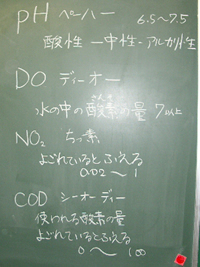 pH ペーハー 6.5〜7.5
酸性ー中性ーアルカリ性
DO ディーオー
さんそ
水の中の酸素の量 7以上
NO₂ ちっ素
よごれているとふえる
0.02 〜 1
COD シーオーディー
使われる酸素の量
よごれているとふえる
0 〜 100